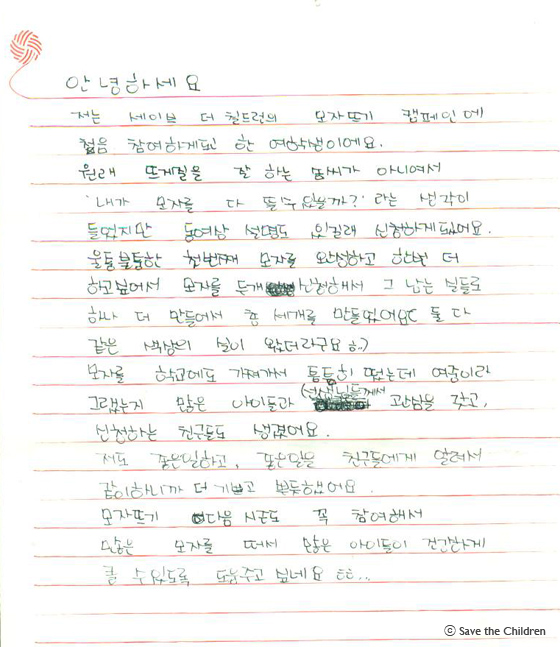 안녕하세요
저는 세이브 더 칠드런의 모자뜨기 캠페인에
첨음 참여하게된 한 여학생이에요.
원래 뜨게질을 잘 하는 솜씨가 아니여서
'내가 모자를 다 뜰 수 있을까?' 라는 생각이
들었지만 동영상 설명도 있길래 신청하게됬어요.
울퉁불퉁한 첫번째 모자를 완성하고 한번 더
하고싶어서 모자를 두개 신청해서 그 남는 실들로
하나 더 만들어서 총 세개를 만들었어요 둘 다
같은 색상의 실이 왔더라구요 ㅎㅎ)
모자를 학교에도 가져가서 틈틈히 떴는데 여중이라
그랬는지 많은 아이들과 (선생님들께서 관심을 갖고,
신청하는 친구들도 생겼어요.
저도 좋은일하고, 좋은일을 친구들에게 알려서
같이하니까 더 기쁘고 뿌듯했어요.
모자뜨기 다음 시즌도 꼭 참여해서
많은 모자를 떠서 많은 아이들이 건강하게
클 수 있도록 도움주고 싶네요 ㅎㅎ..
© Save the Children